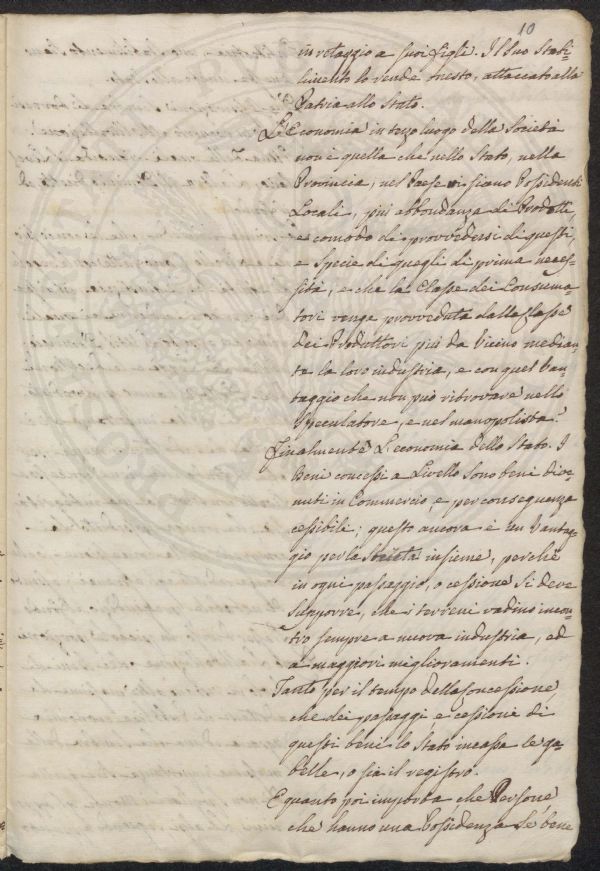 10
in retaggio a suoi figli. Il suo Stabi-
limento lo rende onesto, attaccato alla
Patria allo Stato.
L'Economia in terzo luogo della Società
non è quella che nello Stato, nella
Provincia, nel Paese vi siano Possidenti
Locali, più abbondanza di Prodotti,
e comodo di provvedersi di questi,
e specie di quegli di prima neces-
sità, e che la Classe dei Consuma-
tori venge provveduta dalla Classe
dei Produttori più da vicino median-
te la loro industria, e con quel van-
taggio che non può ritrovare nello
Speculatore, e nel manopolista?
Finalmente L'economia dello Stato. I
beni concessi a Livello sono beni dive-
nuti in Commercio, e per conseguenza
cessibili; questo ancora è un vantag-
gio per la Società insieme, perchè
in ogni passaggio, o cessione si deve
supporre, che i terreni vadino incon-
tro sempre a nuova industria, ed
a maggiori miglioramenti.
Tanto per il tempo della concessione
che dei passaggi, e cessione di
questi beni lo Stato incassa le ga-
belle, o sia il registro.
E quanto poi importa che Persone
che hanno una Possidenza se bene